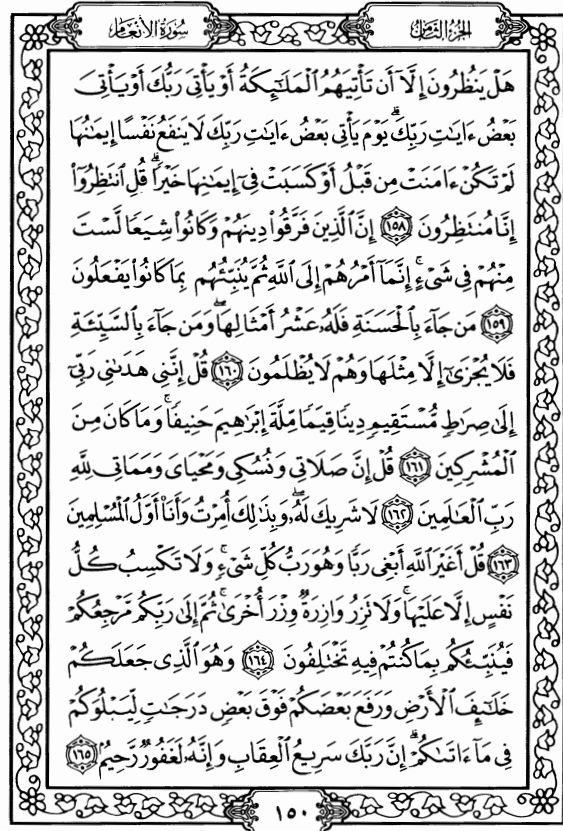 سُورَةُ الأَنْعَام
الجُزْءُ الثَّامِنُ
هَلْ يَنظُرُونَ إِلَّآ أَن تَأْتِيَهُمُ ٱلْمَلَٰٓئِكَةُ أَوْ يَأْتِىَ رَبُّكَ أَوْ يَأْتِىَ
بَعْضُ ءَايَٰتِ رَبِّكَ ۗ يَوْمَ يَأْتِى بَعْضُ ءَايَٰتِ رَبِّكَ لَا يَنفَعُ نَفْسًا إِيمَٰنُهَا
لَمْ تَكُنْ ءَامَنَتْ مِن قَبْلُ أَوْ كَسَبَتْ فِىٓ إِيمَٰنِهَا خَيْرًا ۗ قُلِ ٱنتَظِرُوٓا۟
إِنَّا مُنتَظِرُونَ ١٥٨ إِنَّ ٱلَّذِينَ فَرَّقُوا۟ دِينَهُمْ وَكَانُوا۟ شِيَعًا لَّسْتَ
مِنْهُمْ فِى شَىْءٍ ۚ إِنَّمَآ أَمْرُهُمْ إِلَى ٱللَّهِ ثُمَّ يُنَبِّئُهُم بِمَا كَانُوا۟ يَفْعَلُونَ
١٥٩ مَن جَآءَ بِٱلْحَسَنَةِ فَلَهُۥ عَشْرُ أَمْثَالِهَا ۖ وَمَن جَآءَ بِٱلسَّيِّئَةِ
فَلَا يُجْزَىٰٓ إِلَّا مِثْلَهَا وَهُمْ لَا يُظْلَمُونَ ١٦٠ قُلْ إِنَّنِى هَدَىٰنِى رَبِّىٓ
إِلَىٰ صِرَٰطٍ مُّسْتَقِيمٍ دِينًا قِيَمًا مِّلَّةَ إِبْرَٰهِيمَ حَنِيفًا ۚ وَمَا كَانَ مِنَ
ٱلْمُشْرِكِينَ ١٦١ قُلْ إِنَّ صَلَاتِى وَنُسُكِى وَمَحْيَاىَ وَمَمَاتِى لِلَّهِ
رَبِّ ٱلْعَٰلَمِينَ ١٦٢ لَا شَرِيكَ لَهُۥ ۖ وَبِذَٰلِكَ أُمِرْتُ وَأَنَا۠ أَوَّلُ ٱلْمُسْلِمِينَ
١٦٣ قُلْ أَغَيْرَ ٱللَّهِ أَبْغِى رَبًّا وَهُوَ رَبُّ كُلِّ شَىْءٍ ۚ وَلَا تَكْسِبُ كُلُّ
نَفْسٍ إِلَّا عَلَيْهَا ۚ وَلَا تَزِرُ وَازِرَةٌ وِزْرَ أُخْرَىٰ ۚ ثُمَّ إِلَىٰ رَبِّكُم مَّرْجِعُكُمْ
فَيُنَبِّئُكُم بِمَا كُنتُمْ فِيهِ تَخْتَلِفُونَ ١٦٤ وَهُوَ ٱلَّذِى جَعَلَكُمْ
خَلَٰٓئِفَ ٱلْأَرْضِ وَرَفَعَ بَعْضَكُمْ فَوْقَ بَعْضٍ دَرَجَٰتٍ لِّيَبْلُوَكُمْ
فِى مَآ ءَاتَىٰكُمْ ۗ إِنَّ رَبَّكَ سَرِيعُ ٱلْعِقَابِ وَإِنَّهُۥ لَغَفُورٌ رَّحِيمٌۢ ١٦٥
١٥٠